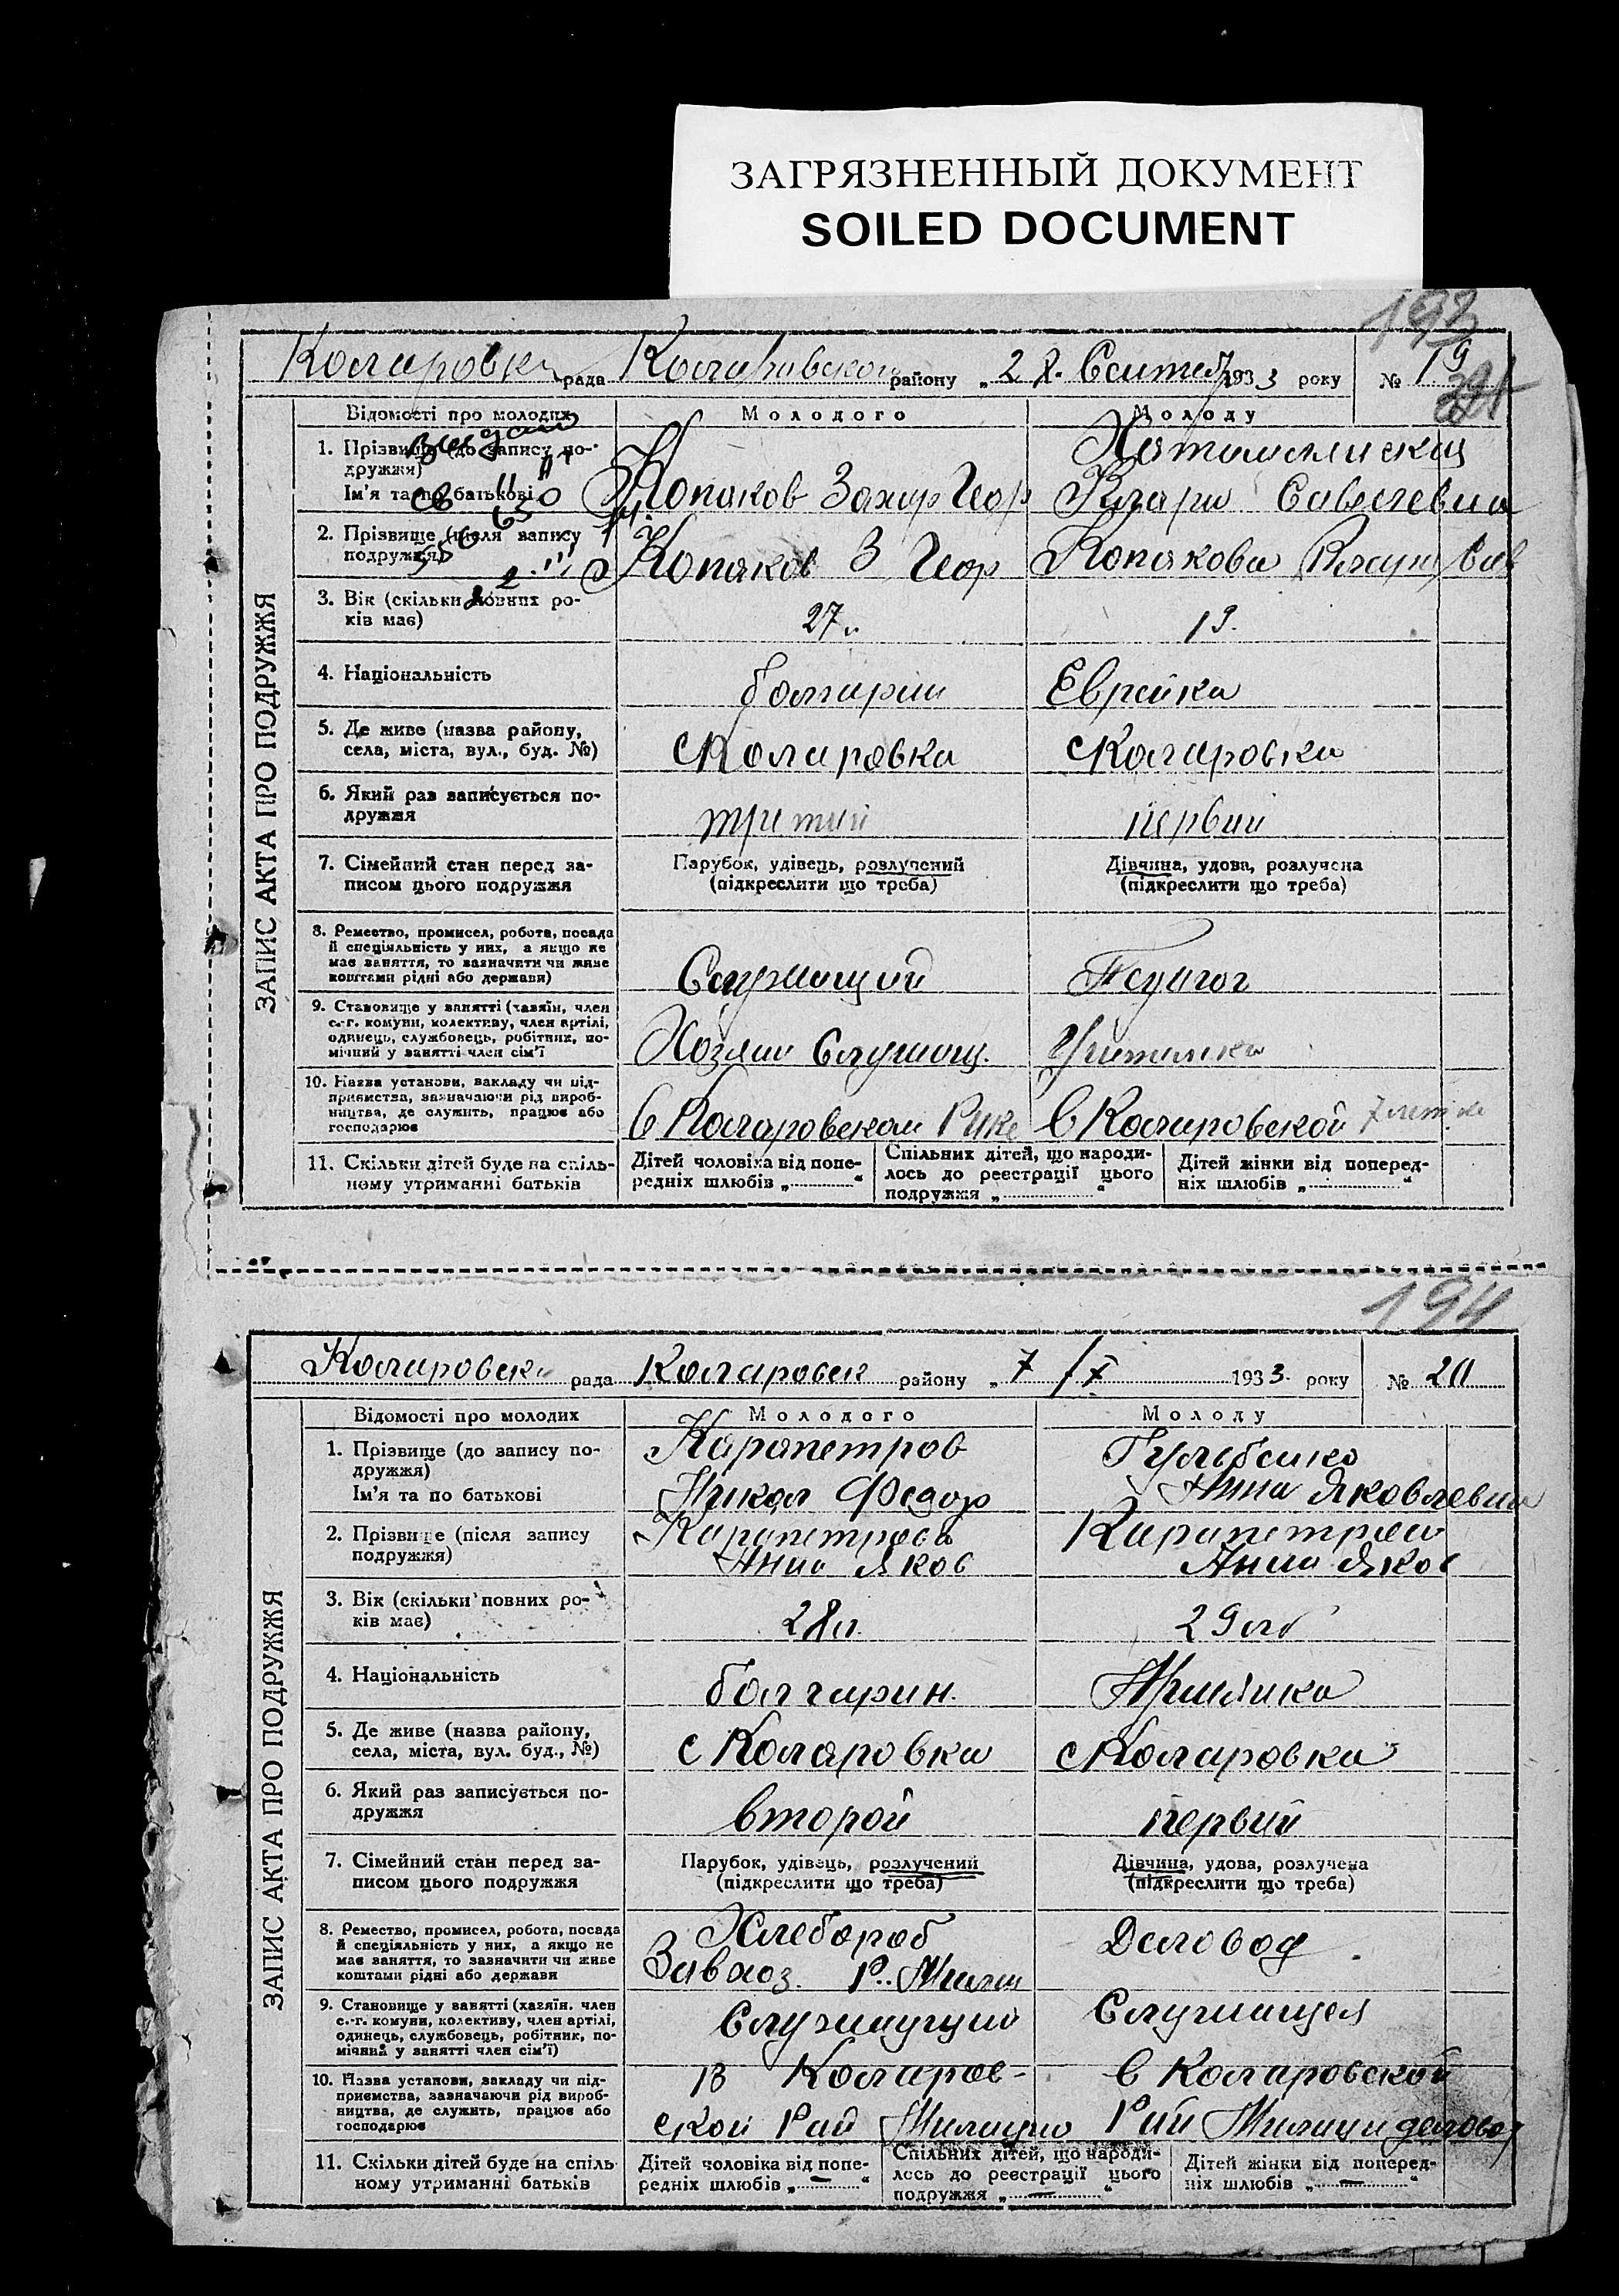 ЗАГРЯЗНЕННЫЙ ДОКУМЕНТ
SOILED DOCUMENT
193
Коларовка рада Коларовского району „ 28. Сентеб 1933 року № 19
ЗАПИС АКТА ПРО ПОДРУЖЖЯ
Відомості про молодих Молодого Молоду
1. Прізвище (до запису по-
дружжя)
Ім'я та по батькові
Копаков Захар Геор
Клара Савелевна
2. Прізвище (після запису
подружжя)
Копаков З Геор
Копакова Клара Сав
3. Вік (скільки повних ро-
ків має)
27
19.
4. Національність
болгарин
Еврейка
5. Де живе (назва району,
села, міста, вул., буд. №)
с Коларовка
с Коларовка
6. Який раз записується по-
дружжя
третий
первий
7. Сімейний стан перед за-
писом цього подружжя
Парубок, удівець, розлучений
(підкреслити що треба)
Дівчина, удова, розлучена
(підкреслити що треба)
8. Ремество, промисел, робота, посада
й спеціяльність у них, а якщо не
має заняття, то зазначити чи живе
коштами рідні або держави)
Служащий
Педагог
9. Становище у занятті (хазяїн, член
с.-г. комуни, колективу, член артілі,
одинець, службовець, робітник, по-
мічний у занятті член сім'ї
Хозяин Служащ.
Учителка
10. Назва установи, закладу чи під-
приємства, зазначаючи рід вироб-
ництва, де служить, працює або
господарює
в Коларовском Рике
в Коларовской 7 летке
11. Скільки дітей буде на спіль-
ному утриманні батьків
Дітей чоловіка від попе-
редніх шлюбів „ “
Спільних дітей, що народи-
лось до реєстрації цього
подружжя „ “
Дітей жінки від поперед-
ніх шлюбів „ “
194
Коларовск рада Коларовск району „ 7/X 1933. року № 20
ЗАПИС АКТА ПРО ПОДРУЖЖЯ
Відомості про молодих Молодого Молоду
1. Прізвище (до запису по-
дружжя)
Ім'я та по батькові
Карапетров
Никол Федор
Анна Яковлевна
2. Прізвище (після запису
подружжя)
Карапетрова
Анна Яков
Карапетрова
Анна Яков
3. Вік (скільки повних ро-
ків має)
28л.
29 л
4. Національність
болгарин.
5. Де живе (назва району,
села, міста, вул. буд., №)
с Коларовка
с Коларовка
6. Який раз записується по-
дружжя
второй
первий
7. Сімейний стан перед за-
писом цього подружжя
Парубок, удівець, розлучений
(підкреслити що треба)
Дівчина, удова, розлучена
(підкреслити що треба)
8. Ремество, промисел, робота, посада
й спеціяльність у них, а якщо не
має заняття, то зазначити чи живе
коштами рідні або держави
Хлебороб
Завхоз. Р. Милиц
Деловод
9. Становище у занятті (хазяїн, член
с.-г. комуни, колективу, член артілі,
одинець, службовець, робітник, по-
мічний у занятті член сім'ї)
Служащий
Служащея
10. Назва установи, закладу чи під-
приємства, зазначаючи рід вироб-
ництва, де служить, працює або
господарює
в Каларов-
ской Рай Милицию
в Коларовской
Рай Милици деловод
11. Скільки дітей буде на спіль-
ному утриманні батьків
Дітей чоловіка від попе-
редніх шлюбів „ — “
Спільних дітей, що народи-
лось до реєстрації цього
подружжя „ — “
Дітей жінки від поперед-
ніх шлюбів „ — “